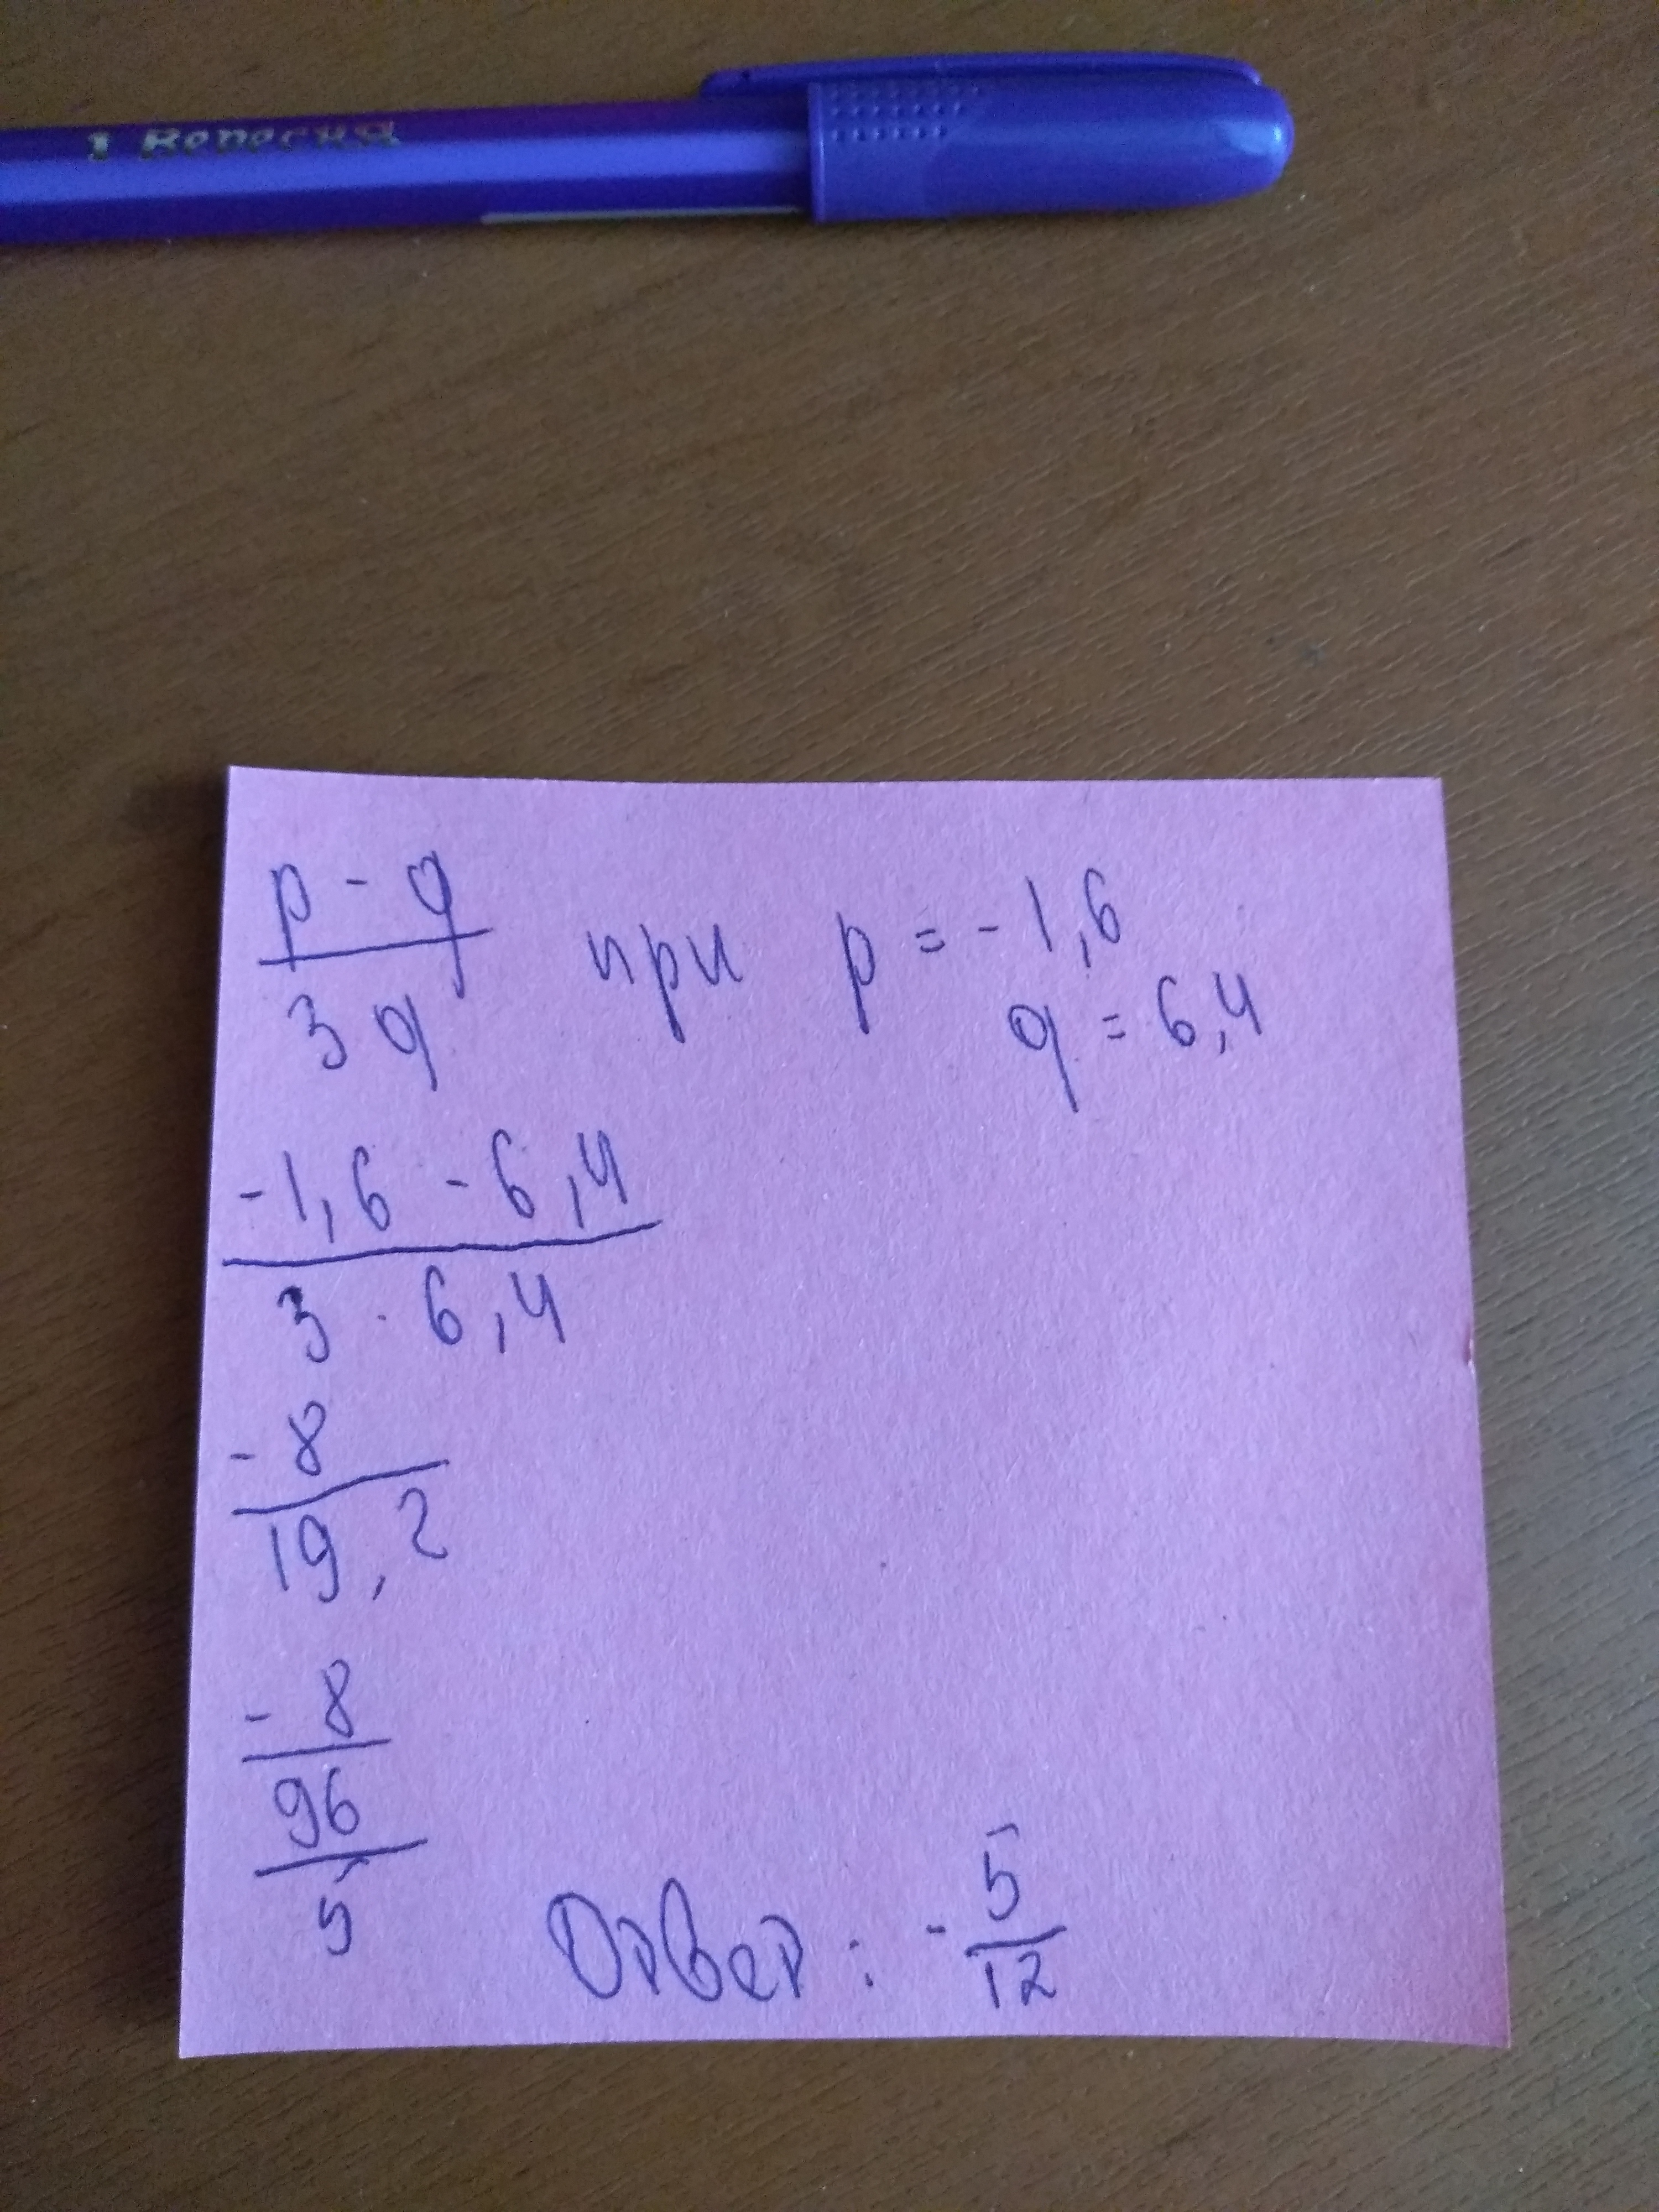 1 Вересня
p - q
3 q
при p = - 1,6
q = 6,4
-1,6 - 6,4
3 · 6,4
- 8
19,2
- 8
96
5
Ответ : - 5
12